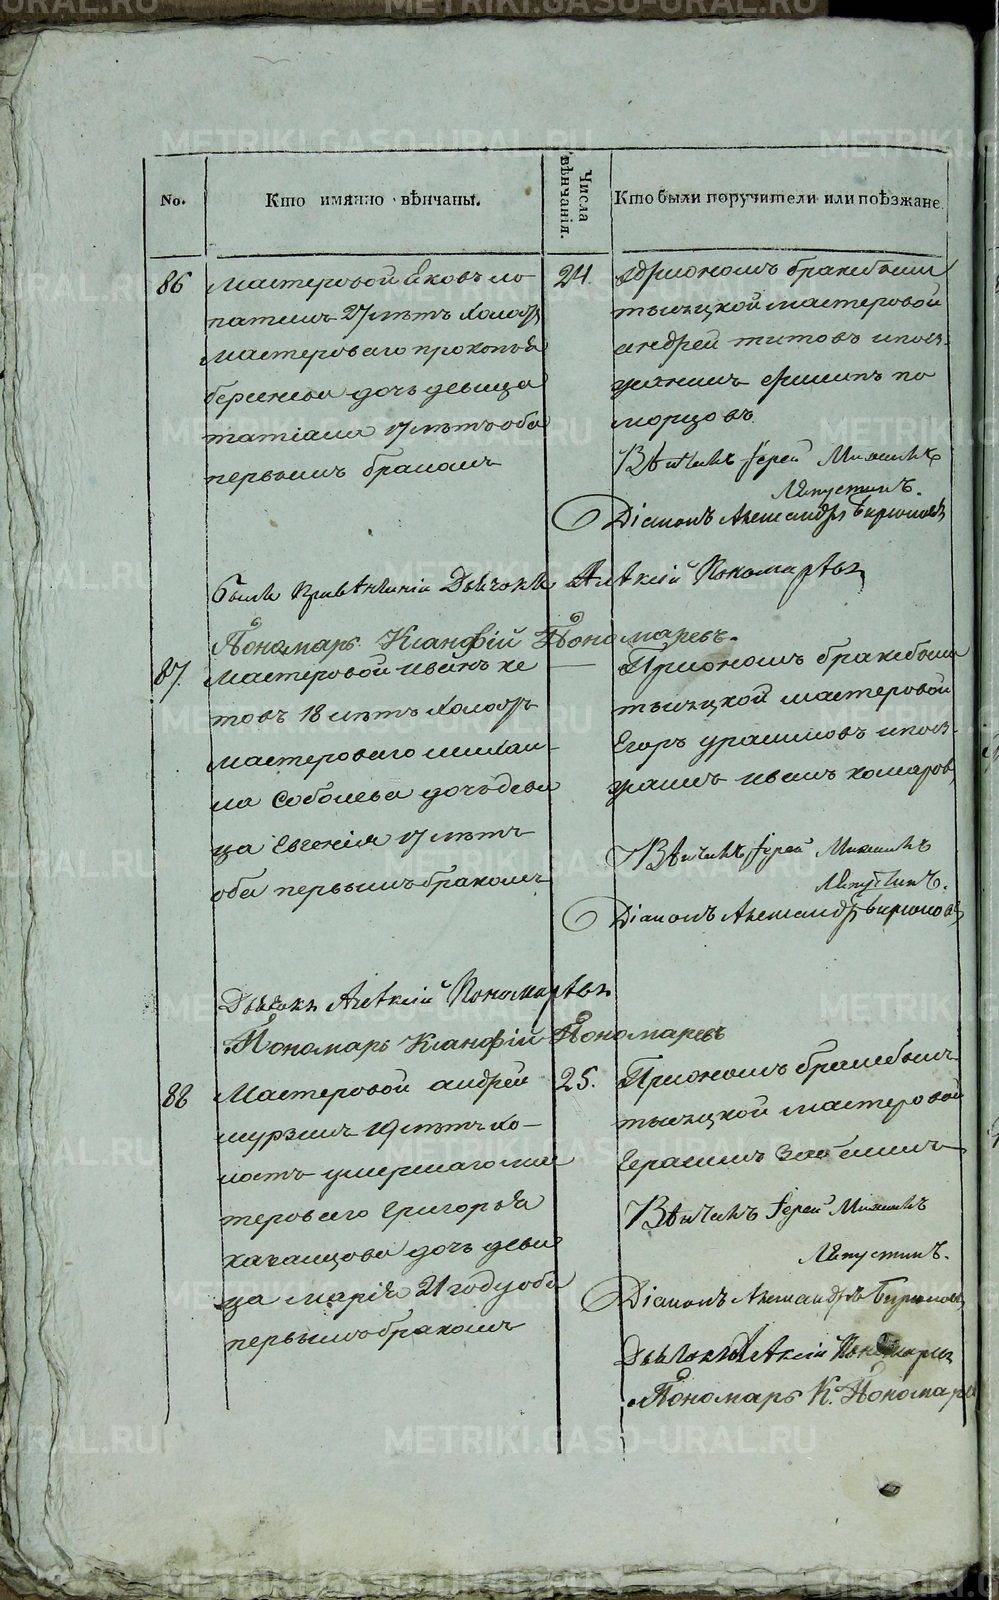 METRIKI.GASO-URAL.RU
No.
Кто имянно вѣнчаны.
Числа вѣнчанія.
Кто были поручители или поѣзжане.
86
мастеровой Яковъ ло-
патинъ 27 лѣтъ холостъ
мастероваго прокопья
дочь девица
татіана 17 лѣтъ оба
первымъ бракомъ
24.
при ономъ браке были
мастеровой
андрей титовъ и поез-
жанинъ филипъ по
морцовъ
Вѣнчалъ Іерей Михаилъ
Ляпустинъ.
Діаконъ Александръ Бирюковъ
были при вѣнчаніи Дьячокъ Алѣксѣй Пономарѣвъ
Пономарь Ксанфій Пономаревъ.
87.
мастеровой иванъ ке
товъ 18 лѣтъ холостъ
мастероваго михаи-
ла соболева дочь деви
ца Евгенія 17 лѣтъ
оба первымъ бракомъ
При ономъ браке были
мастеровой
Егоръ и поез-
жанинъ иванъ комаровъ
Вѣнчалъ Іерей Михаилъ
Ляпустинъ.
Діаконъ Александръ Бирюковъ
Дьячокъ Алѣксѣй Пономарѣвъ
Пономарь Ксанфій Пономаревъ
88
Мастеровой андрей
19 лѣтъ хо-
лостъ умершаго мас
тероваго григорья
дочь деви
ца марія 21 году оба
первымъ бракомъ
25.
При ономъ браке былъ
мастеровой
Герасимъ
Вѣнчалъ Іерей Михаилъ
Ляпустинъ.
Діаконъ Александръ Бирюковъ
Дьячокъ Алѣксѣй
Пономарь К. Пономаре